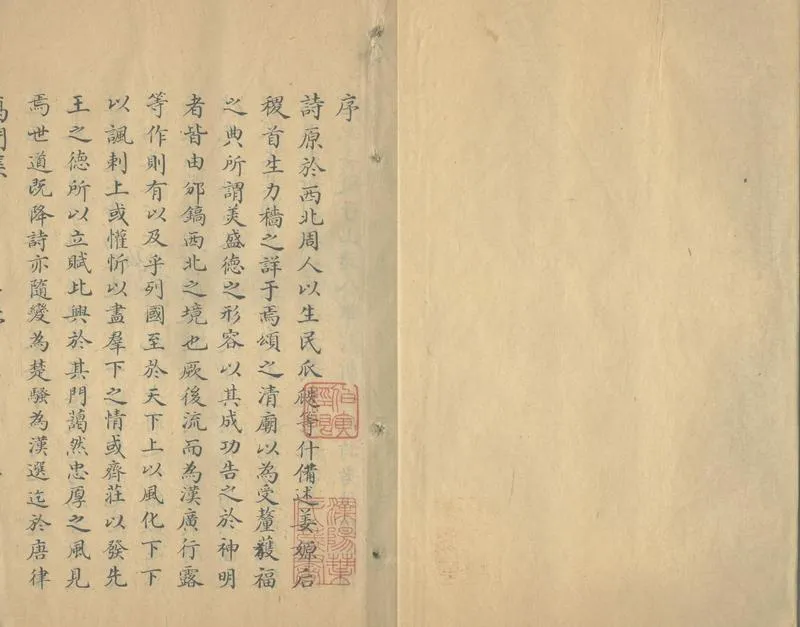 序
詩原於西北周人以生民瓜瓞等什備述姜嫄后
稷首生力穡之詳于焉頌之清廟以為受釐穫福
之典所謂美盛德之形容以其成功告之於神明
者皆由邠鎬西北之境也厥後流而為漢廣行露
等作則有以及乎列國至於天下上以風化下下
以諷刺上或懽忻以盡羣下之情或齊莊以發先
王之德所以立賦比興於其門藹然忠厚之風見
焉世道既降詩亦隨變為楚騷為漢選迄於唐律